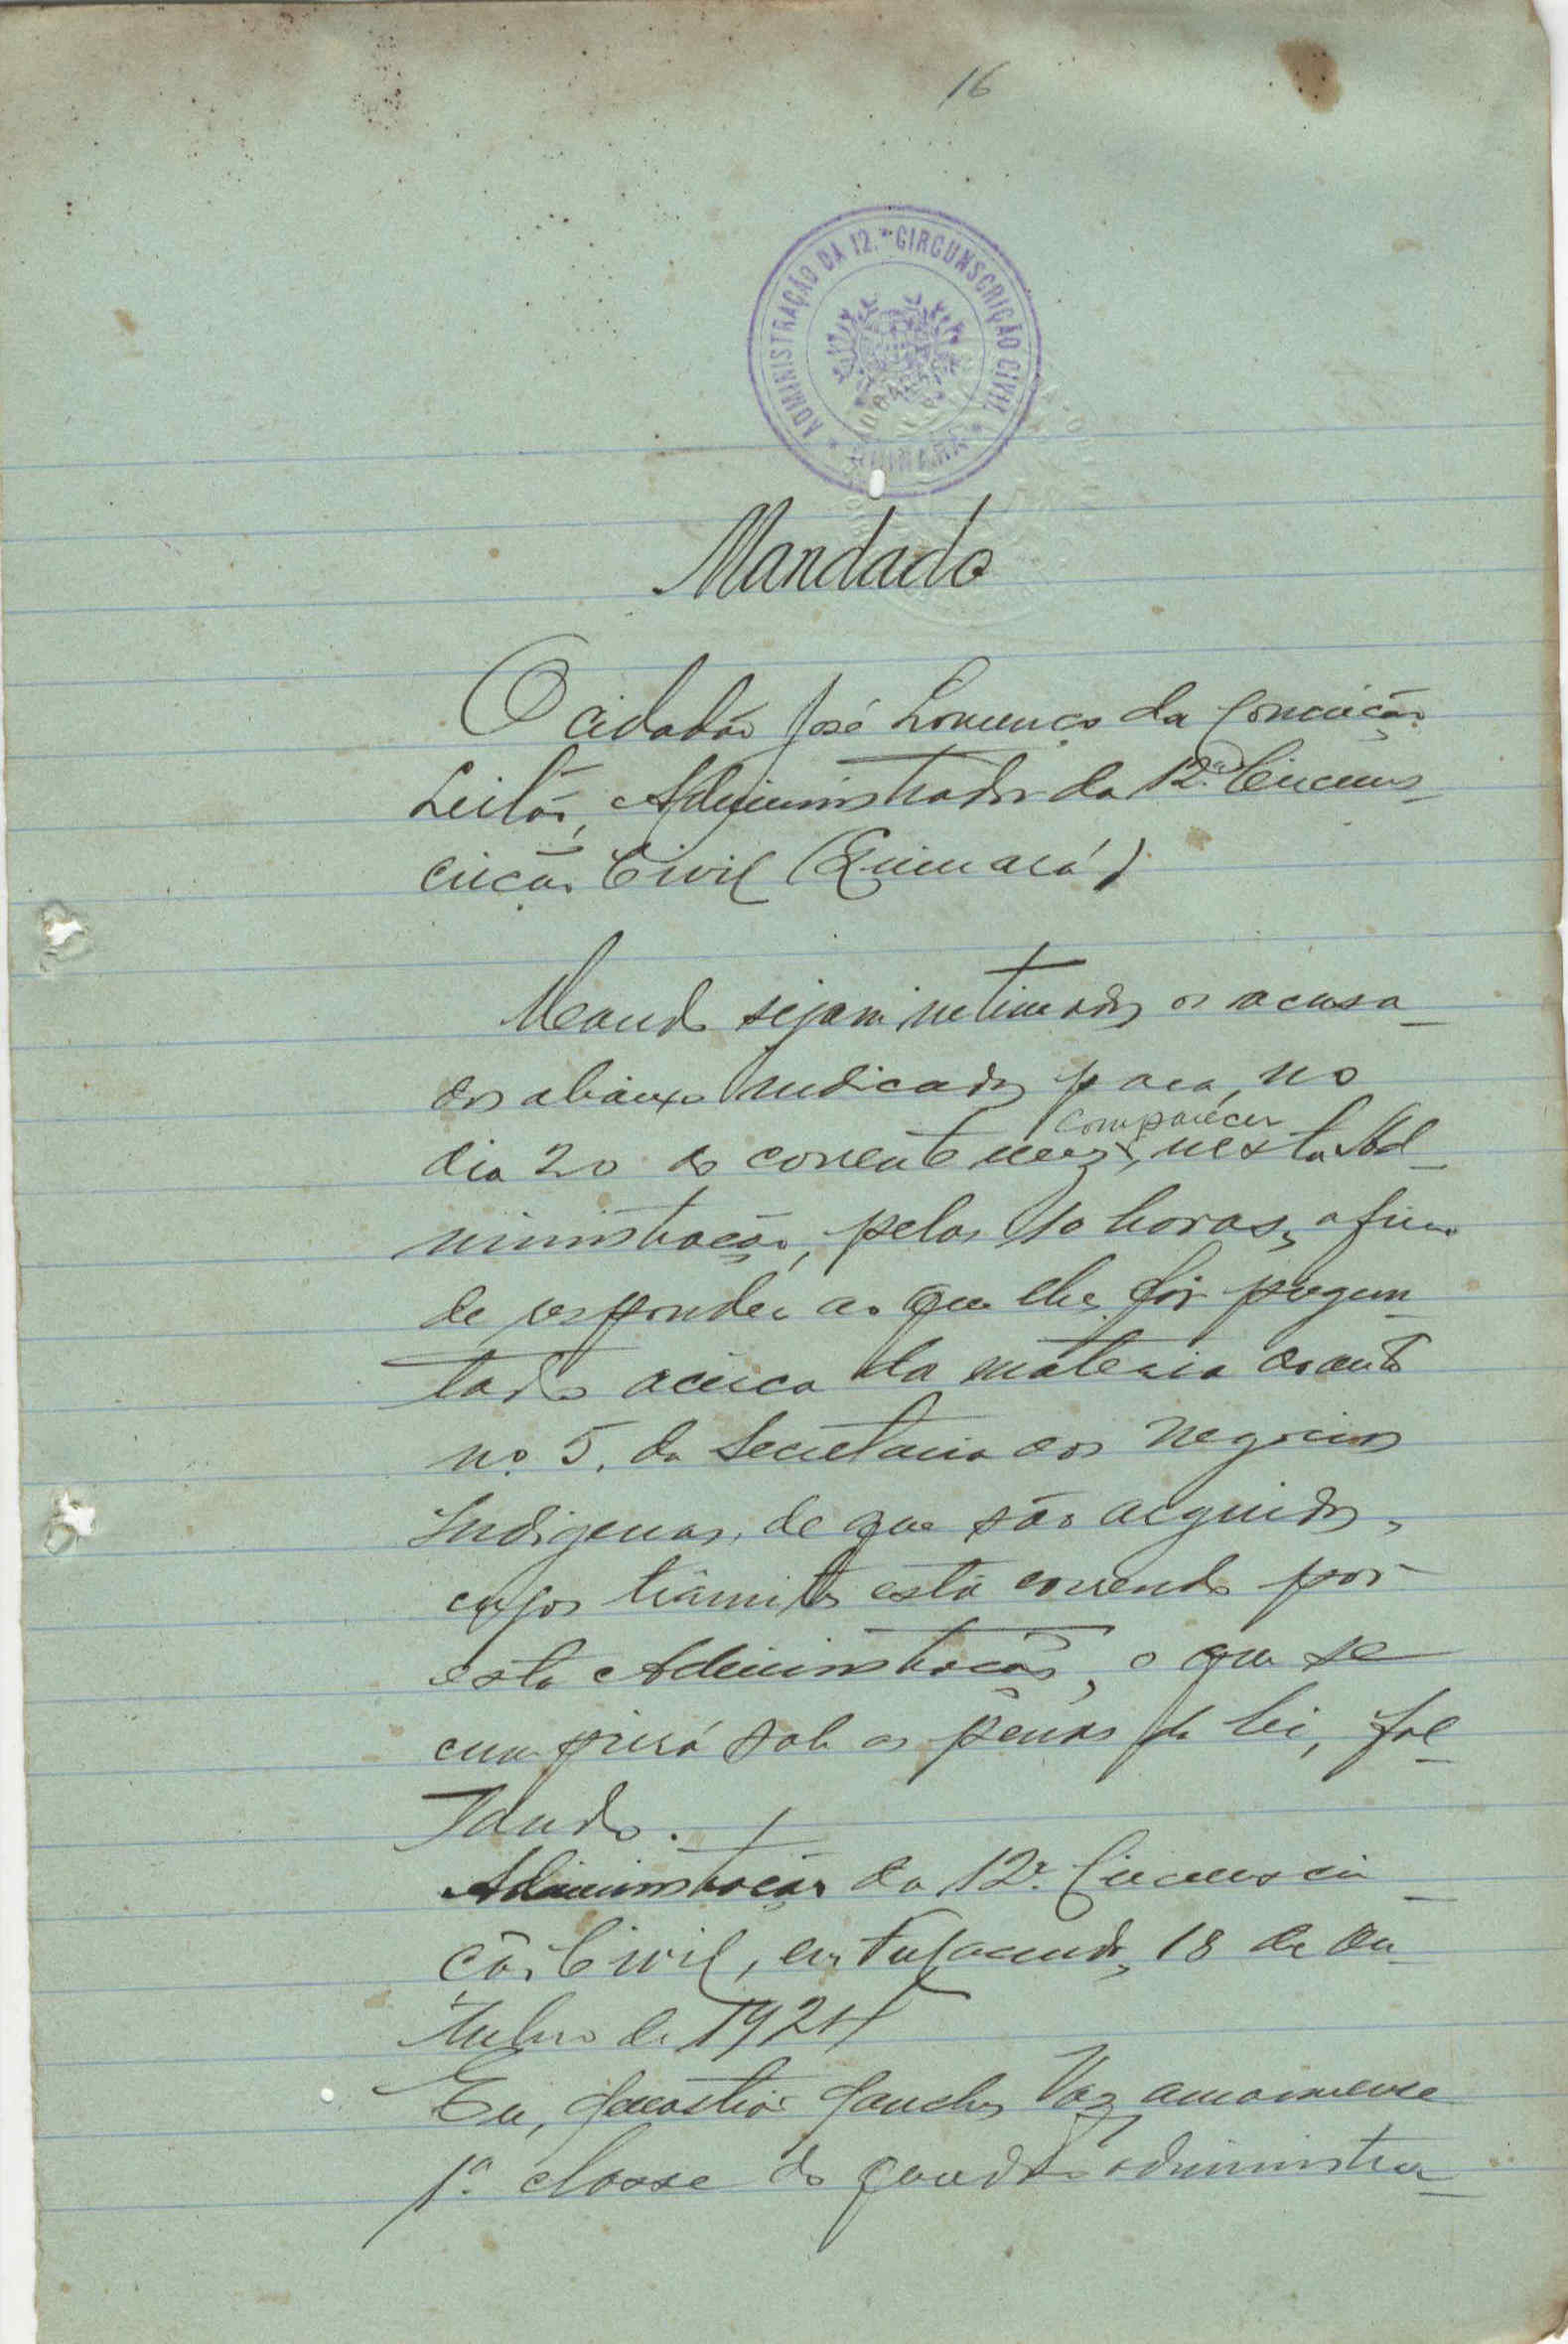 16
ADMINISTRAÇÃO DA 12.ª CIRCUNSCRIÇÃO CIVIL
QUINARÁ
Mandado
O cidadão José Lourenço da Conceição
Leitão, Administrador da 12.ª Circuns-
crição Civil (Quinará)
Mando sejam intimados os acusa-
dos abaixo indicados para, no
comparecer
dia 20 do corrente mez, nesta Ad-
ministração, pelas 10 horas, afim
de responder ao que lhes fôr pregun-
tado acêrca da materia do auto
nº. 5, da Secretaria dos Negocios
Indigenas, de que são arguidos,
cujos trâmites está correndo por
esta Administração, o que se
cumprirá sob as penas da lei, fal-
tando.
Administração da 12ª. Circunscri-
ção Civil, em Fulacunda, 18 de Ou-
tubro de 1924
Eu, Sanches Vaz, amanuense
1ª. classe do quadro administra-